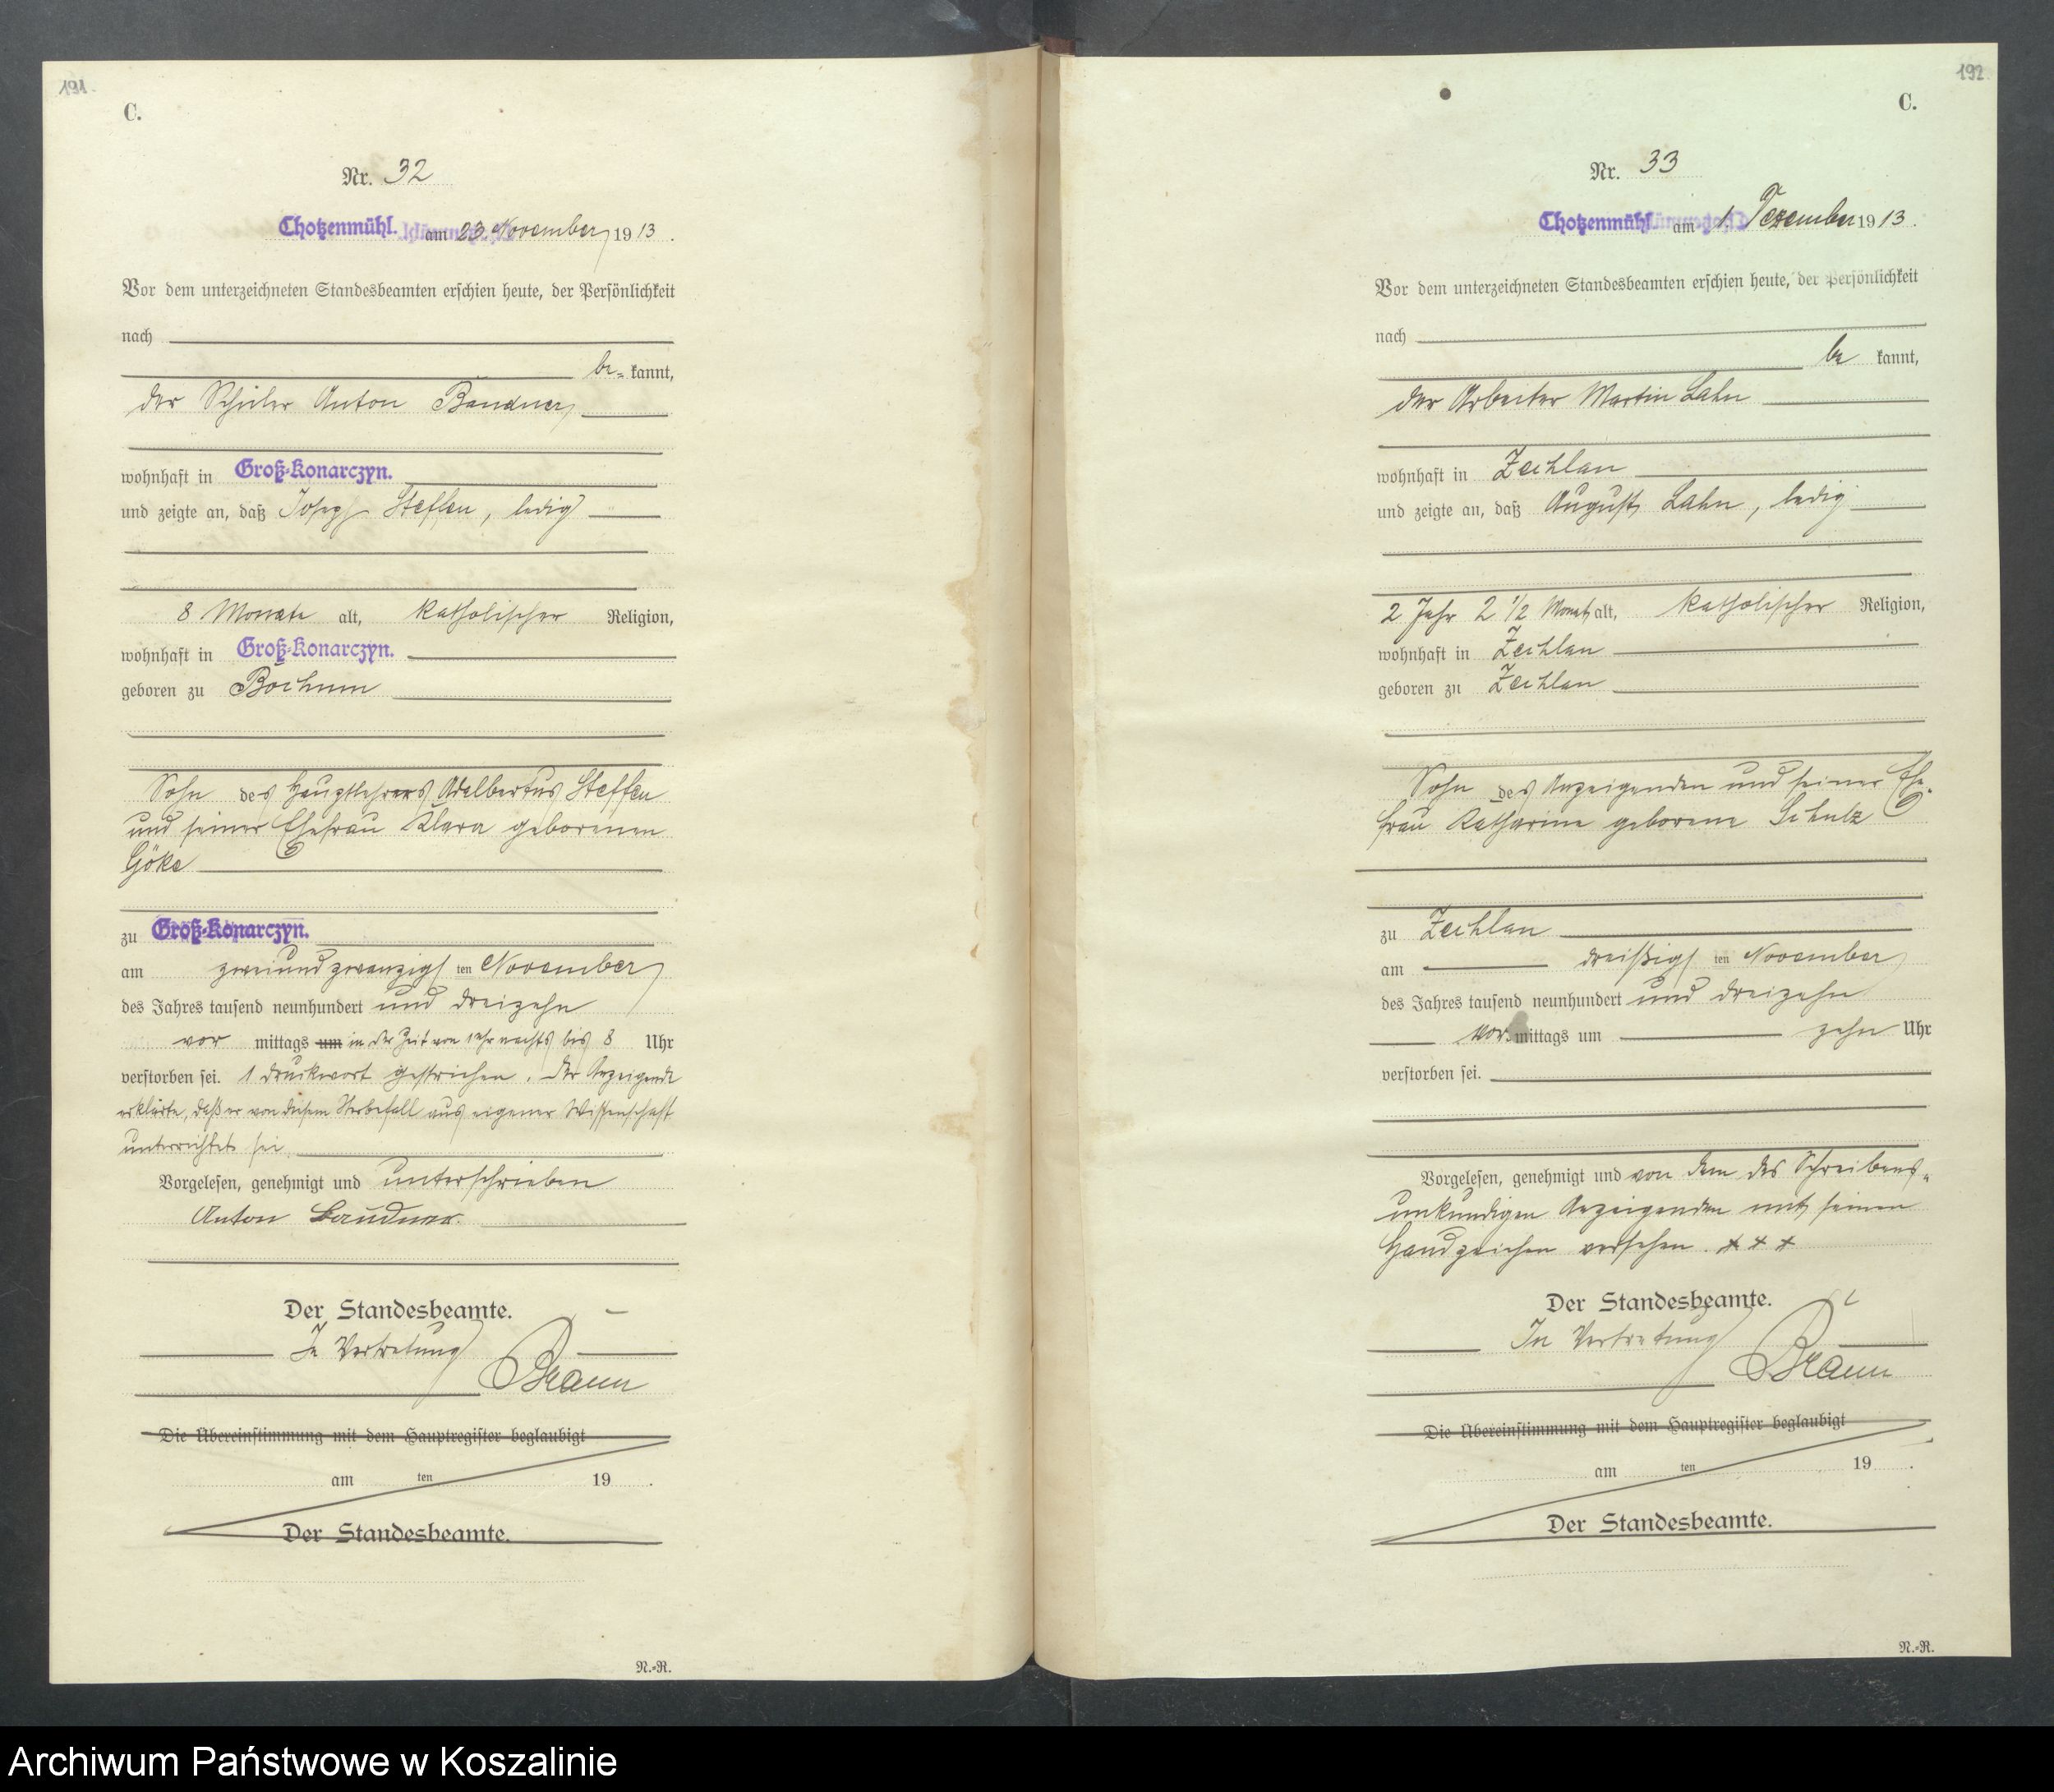 191.
C.
Nr. 32
Chotzenmühl. am 23. November 1913.
Vor dem unterzeichneten Standesbeamten erschien heute, der Persönlichkeit
nach
be= kannt,
der Schüler Anton
wohnhaft in Groß-Konarczyn.
und zeigte an, daß Josef Steffen, ledig
8 Monate alt, katholischer Religion,
wohnhaft in Groß-Konarczyn.
geboren zu Bochum
Sohn des Hauptlehrers Adalbertus Steffen
und seiner Ehefrau Klara geborenen
Göke
zu Groß-Konarczyn.
am zweiundzwanzigsten November
des Jahres tausend neunhundert und dreizehn
vor mittags um in der Zeit von 1 Uhr nachts bis 8 Uhr
verstorben sei. 1 Druckwort gestrichen. Der Anzeigende
erklärte, daß er von diesem Sterbefall aus eigener Wissenschaft
unterrichtet sei.
Vorgelesen, genehmigt und unterschrieben
Anton
Der Standesbeamte.
In Vertretung
Braun
Die Übereinstimmung mit dem Hauptregister beglaubigt
am ten 19 .
Der Standesbeamte.
N.-R.
192.
C.
Nr. 33
Chotzenmühl am 1. Dezember 1913.
Vor dem unterzeichneten Standesbeamten erschien heute, der Persönlichkeit
nach
be kannt,
der Arbeiter Martin Lahn
wohnhaft in Zechlau
und zeigte an, daß August Lahn, ledig
2 Jahr 2 1/2 Monat alt, katholischer Religion,
wohnhaft in Zechlau
geboren zu Zechlau
Sohn des Anzeigenden und seiner Ehe-
frau Katharina geborene Schulz
zu Zechlau
am dreißigsten November
des Jahres tausend neunhundert und dreizehn
vor mittags um zehn Uhr
verstorben sei.
Vorgelesen, genehmigt und von dem des Schreibens=
unkundigen Anzeigenden mit seinem
Handzeichen versehen. + + +
Der Standesbeamte.
In Vertretung
Braun
Die Übereinstimmung mit dem Hauptregister beglaubigt
am ten 19 .
Der Standesbeamte.
N.-R.
Archiwum Państwowe w Koszalinie